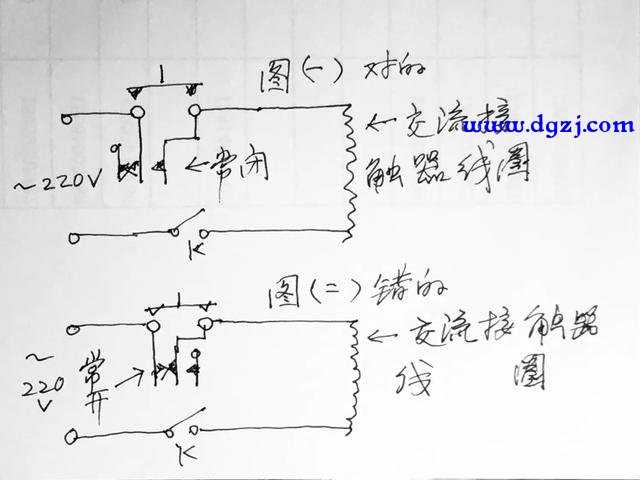 图(一)对的
←交流接
www.dgzj.com
触器线圈
←常闭
~220V
K
图(二)错的
←交流接触器
线 圈
~
220
V
常
开
K